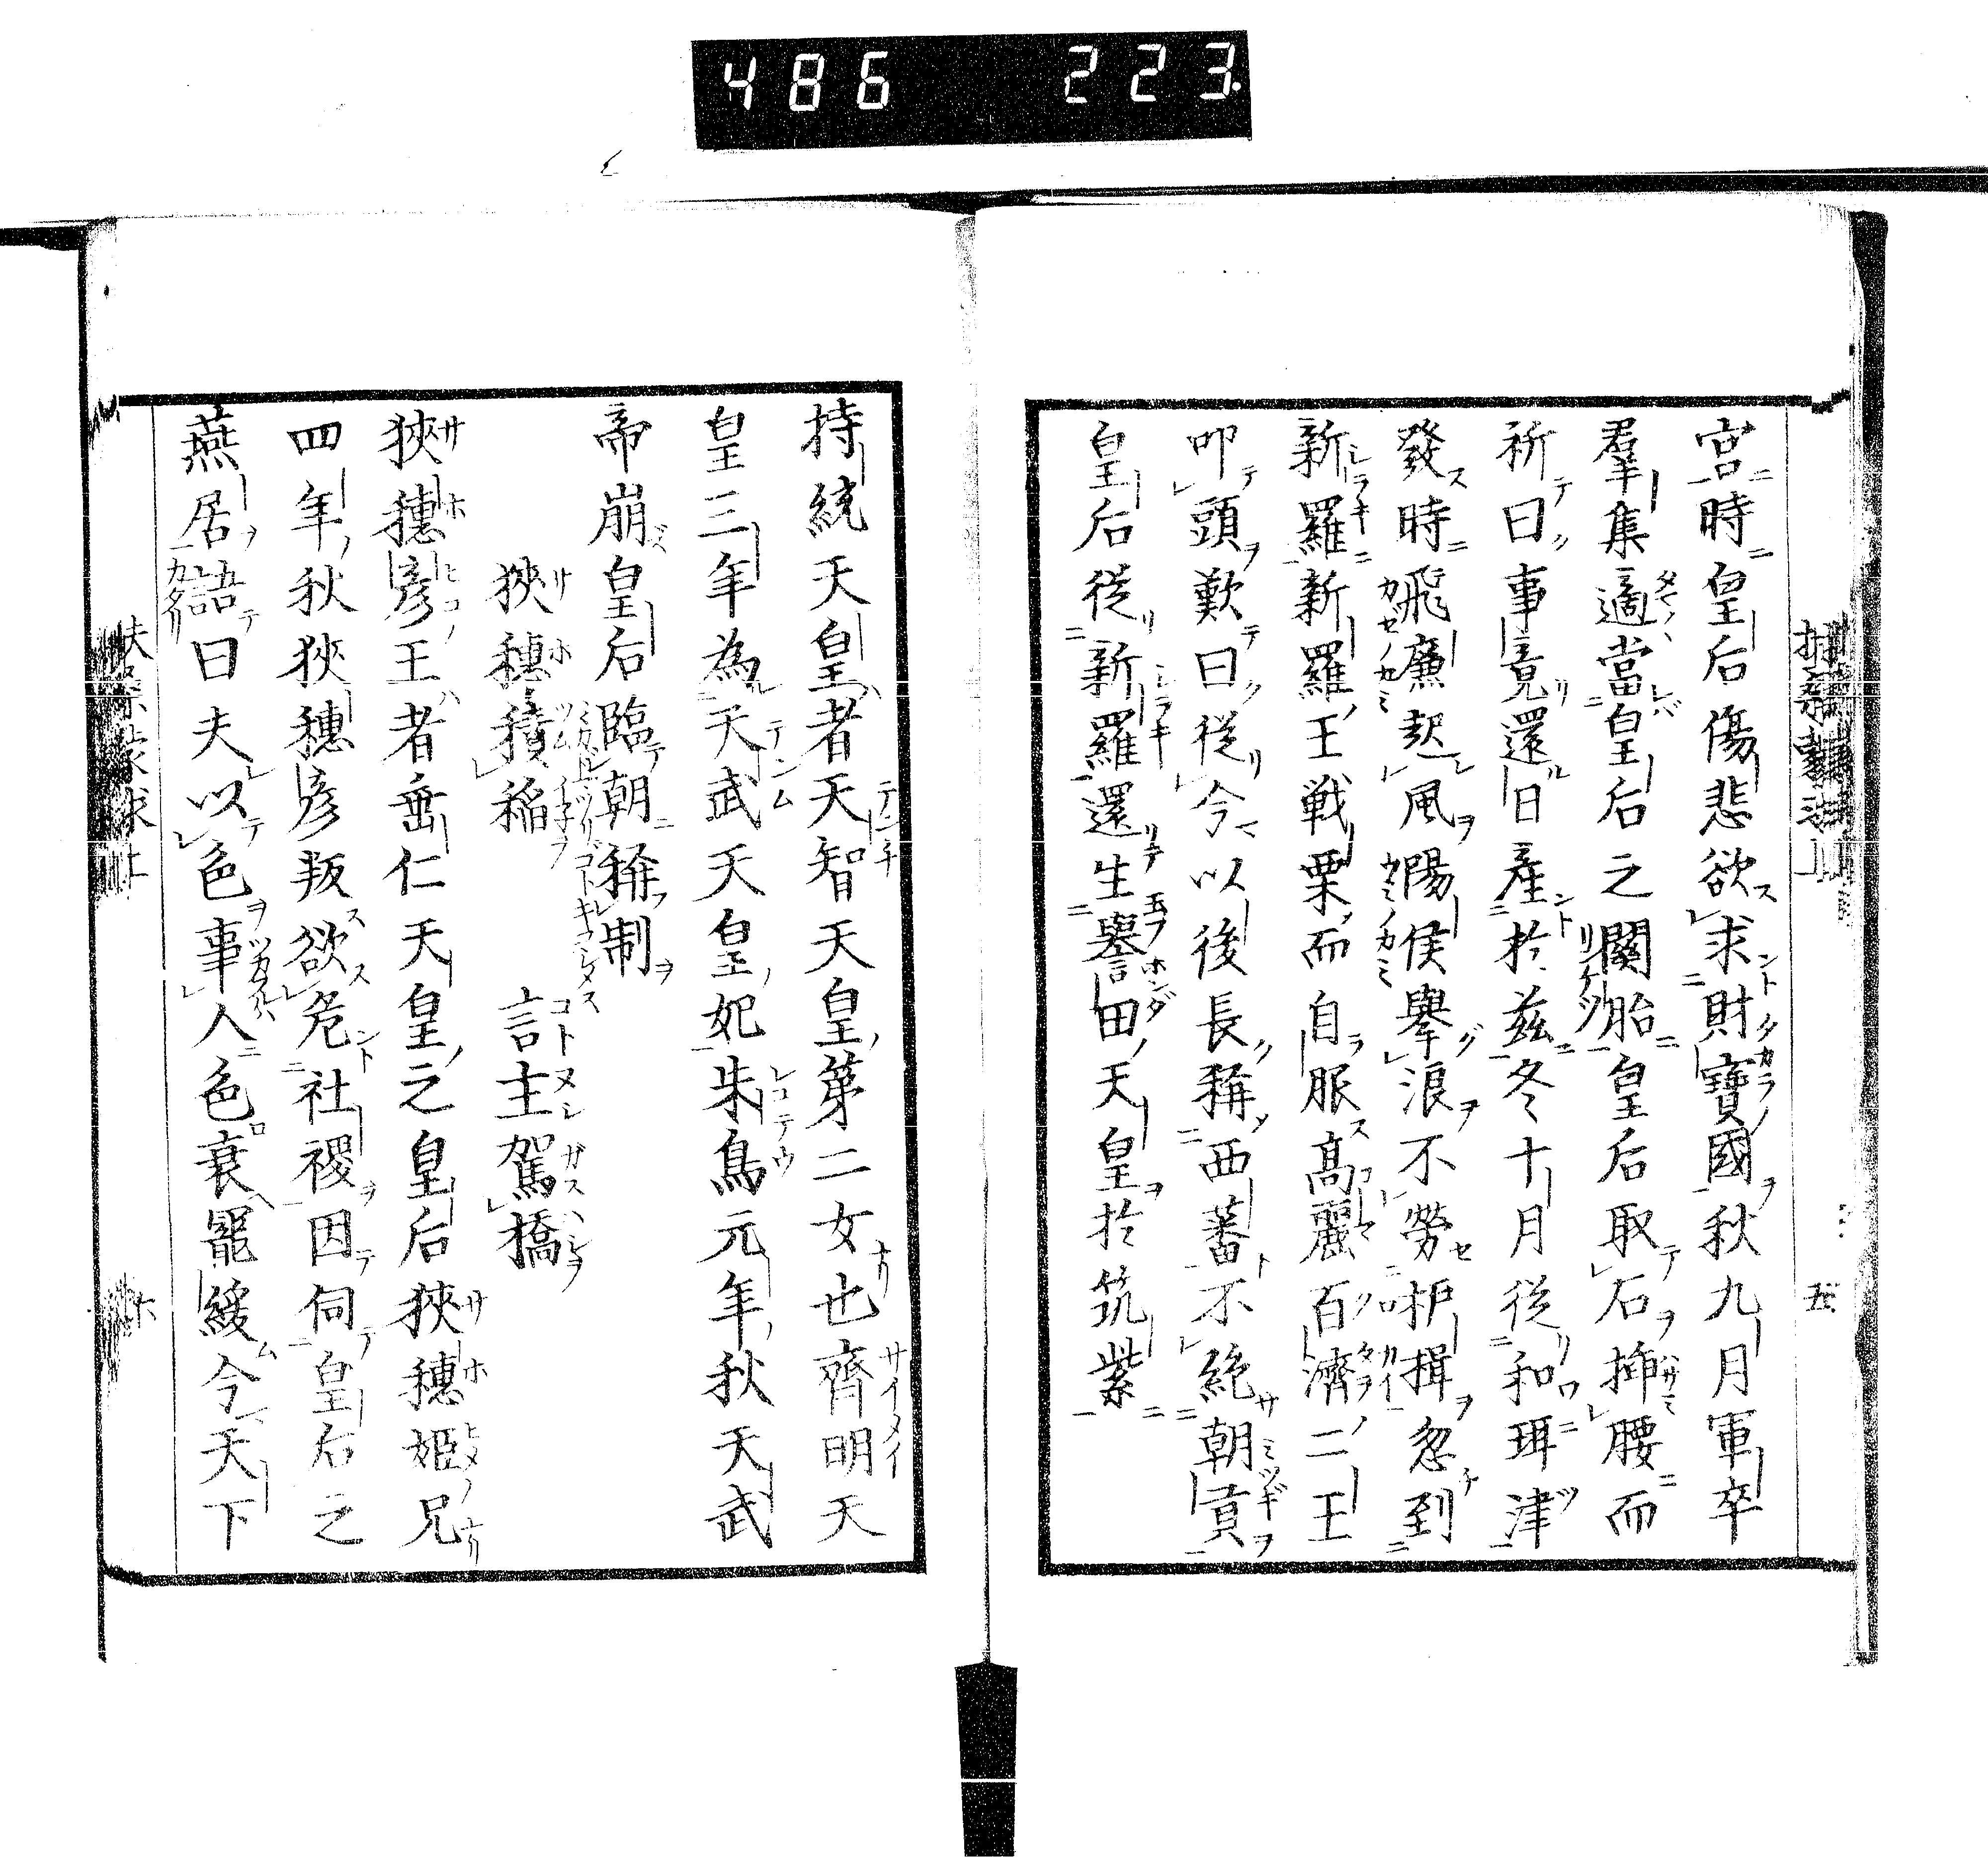 486 223.
宮時皇后傷悲欲求財寶國秋九月軍卒
羣集適當皇后之開胎皇后取石挿腰而
祈曰事竟還日產於兹冬十月從和珥津
發時飛廉起風陽侯擧浪不勞枦揖忽到
新羅新羅王戦栗而自服高麗百濟二王
叩頭歎曰從今以後長稱西蕃不絶朝貢
皇后從新羅還生譽田天皇於筑紫
持統天皇者天智天皇第二女也齊明天
皇三年為天武天皇妃朱鳥元年秋天武
帝崩皇后臨朝稱制
狹穗積稲 言主駕橋
狹穗彦王者垂仁天皇之皇后狹穗姫兄
四年秋狹穗彦叛欲危社稷因伺皇后之
燕居語曰夫以色事人色衰寵緩今天下